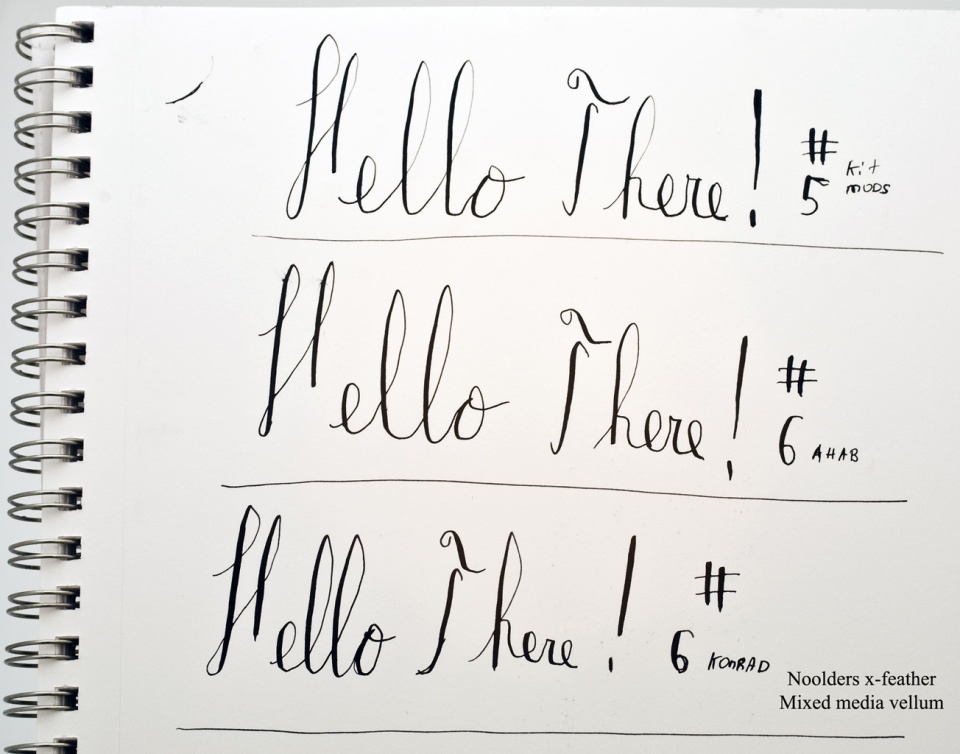 Hello There! # 5 Kit mods
Hello There! # 6 AHAB
Hello There! # 6 KONRAD
Noolders x-feather
Mixed media vellum